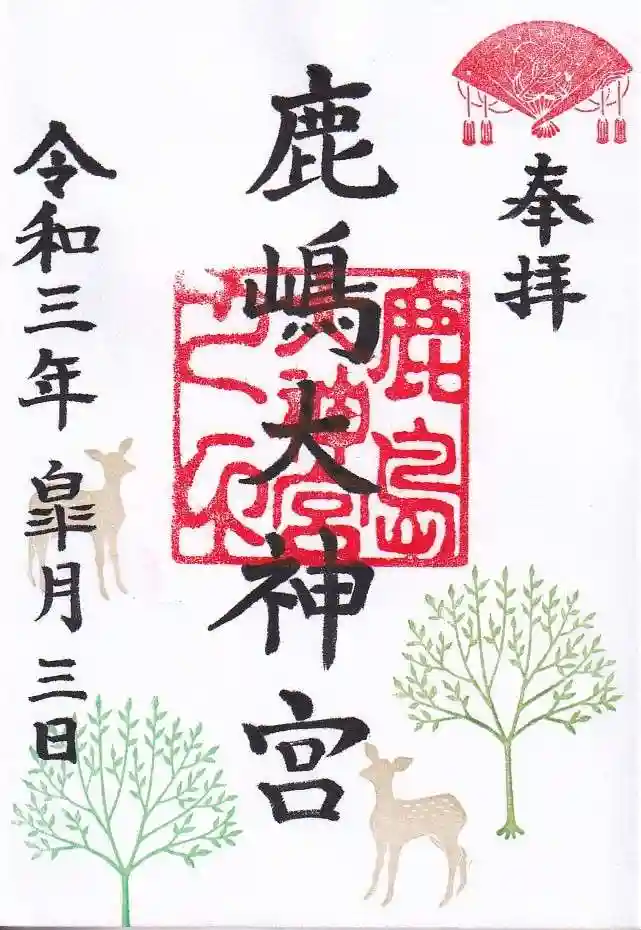 奉拝
鹿嶋大神宮
鹿島
神宮
令和三年皐月三日